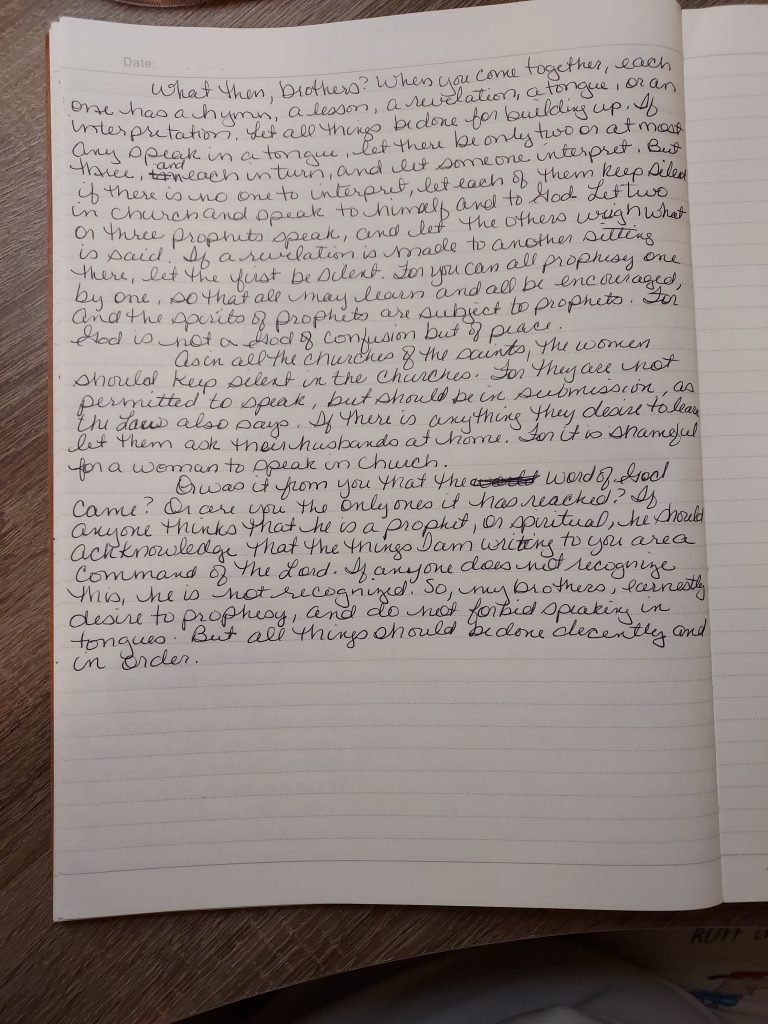 Date:
What then, brothers? When you come together, each
one has a hymn, a lesson, a revelation, a tongue, or an
interpretation. Let all things be done for building up. If
any speak in a tongue, let there be only two or at most
three, and each in turn, and let someone interpret. But
if there is no one to interpret, let each of them keep silent
in church and speak to himself and to God Let two
or three prophets speak, and let the others weigh what
is said. If a revelation is made to another sitting
there, let the first be silent. For you can all prophesy one
by one, so that all may learn and all be encouraged,
and the spirits of prophets are subject to prophets. For
God is not a God of confusion but of peace.
As in all the churches of the saints, the women
should keep silent in the churches. For they are not
permitted to speak, but should be in submission, as
the Law also says. If there is anything they desire to learn
let them ask their husbands at home. For it is shameful
for a woman to speak in church.
Or was it from you that the word of God
came? Or are you the only ones it has reached? If
anyone thinks that he is a prophet, or spiritual, he should
ackknowledge that the things I am writing to you are a
command of the Lord. If anyone does not recognize
this, he is not recognized. So, my brothers, earnestly
desire to prophesy, and do not forbid speaking in
tongues. But all things should be done decently and
in order.
RUFF